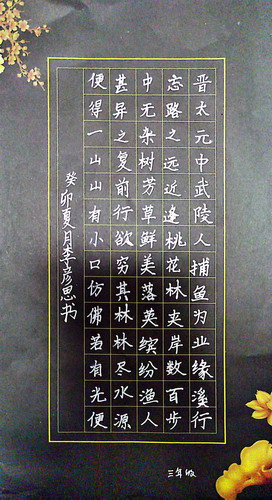 晋太元中武陵人捕鱼为业缘溪行
忘路之远近逢桃花林夹岸数百步
中无杂树芳草鲜美落英缤纷渔人
甚异之复前行欲穷其林林尽水源
便得一山山有小口仿佛若有光便
癸卯夏月李彦思书
三年级